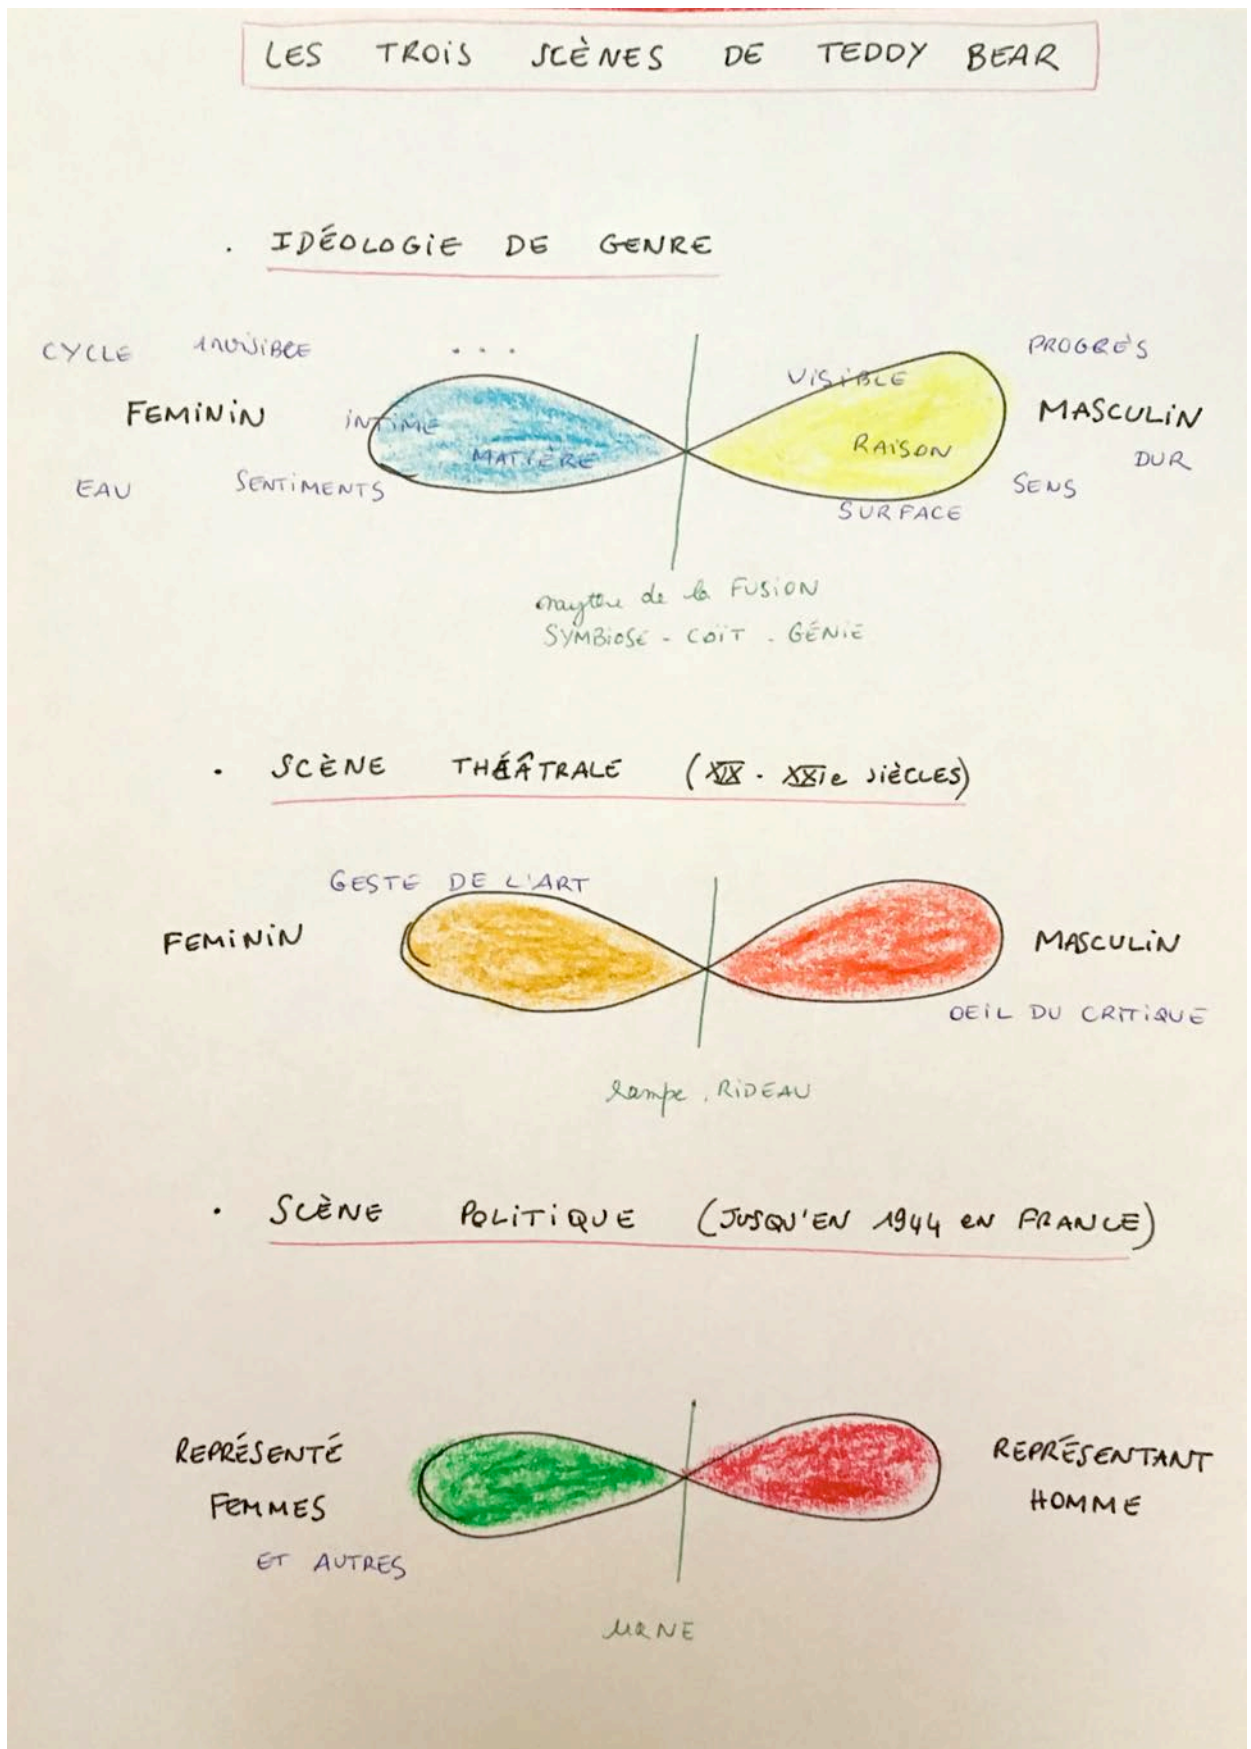 LES TROIS SCÈNES DE TEDDY BEAR
. IDÉOLOGIE DE GENRE
CYCLE INVISIBLE ... PROGRÈS
VISIBLE
FEMININ INTIME MASCULIN
MATIÈRE RAISON DUR
EAU SENTIMENTS SENS
SURFACE
mythe de la FUSION
SYMBIOSE - COÏT - GÉNIE
. SCÈNE THÉÂTRALE (XIX - XXIe SIÈCLES)
GESTE DE L'ART
FEMININ MASCULIN
OEIL DU CRITIQUE
rampe . RIDEAU
. SCÈNE POLITIQUE (JUSQU'EN 1944 EN FRANCE)
REPRÉSENTÉ REPRÉSENTANT
FEMMES HOMME
ET AUTRES
URNE